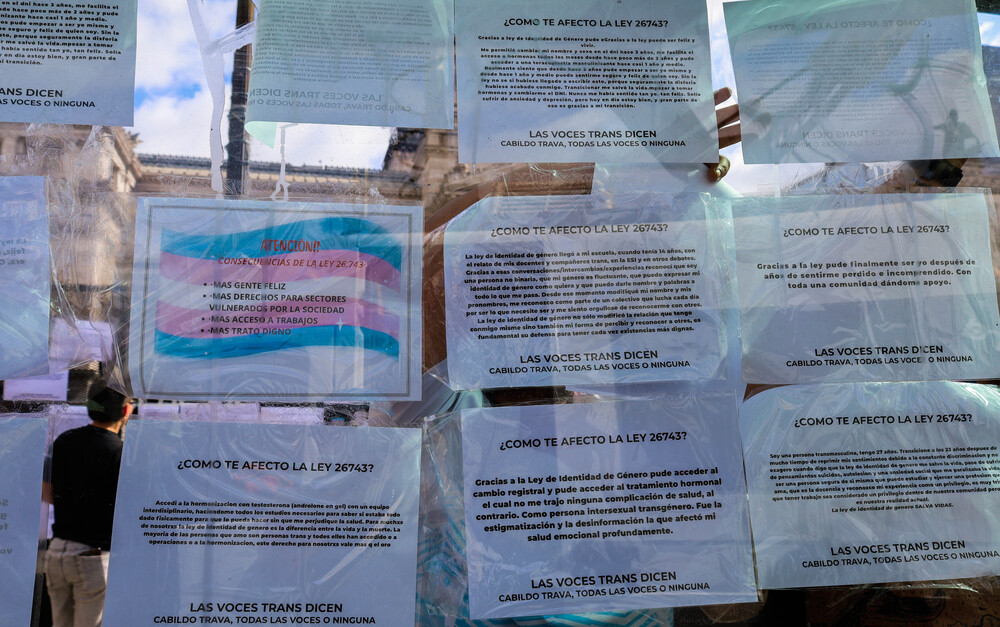 en el dni hace 3 años, me facilita el
meses desde hace poco más de 2 años y pude
hace casi 1 año y medio.
pude empezar a ser yo misme y
seguro y feliz de quien soy. Sin
esto, porque seguramente la disforia
me salvó la vida.mpezar a tomar
había sentido tan yo, tan feliz. Solía
en día estoy bien, y gran parte de
transición.
TRANS DICEN
TODAS LAS VOCES O NINGUNA
LAS VOCES TRANS DICEN
CABILDO TRAVA, TODAS LAS VOCES O NINGUNA
¿COMO TE AFECTO LA LEY 26743?
Gracias a ley de identidad de Género pude eGracias a la ley puedes ser feliz y
vivir.
Me permitió cambiar mi nombre y sexo en el dni hace 3 años, me facilita el
acceso a hormonas todos los meses desde hace poco más de 2 años y pude
acceder a una terapeutica masculinizante hace casi 1 año y medio.
Realmente siento que desde hace 3 años pude empezar a ser yo misme y
desde hace 1 año y medio puede sentirme seguro y feliz de quien soy. Sin la
ley no se si hubiese llegado a escribir esto, porque seguramente la disforia
hubiese acabado conmigo. Transicionar me salvó la vida.mpezar a tomar
hormonas y cambiarme el DNI. Nunca me había sentido tan yo, tan feliz. Solía
sufrir de ansiedad y depresión, pero hoy en día estoy bien, y gran parte de
eso es gracias a mi transición.
LAS VOCES TRANS DICEN
CABILDO TRAVA, TODAS LAS VOCES O NINGUNA
¿COMO TE AFECTO LA LEY 26743?
LAS VOCES TRANS DICEN
CABILDO TRAVA, TODAS LAS VOCES O NINGUNA
ATENCION!!
CONSECUENCIAS DE LA LEY 26.743
·MAS GENTE FELIZ
·MAS DERECHOS PARA SECTORES
VULNERADOS POR LA SOCIEDAD
·MAS ACCESO A TRABAJOS
·MAS TRATO DIGNO
¿COMO TE AFECTO LA LEY 26743?
La ley de identidad de género llegó a mi escuela, cuando tenía 14 años, con
el relato de mis docentes y compañeros trans, en la ESI y en otros debates.
Gracias a esas conversaciones/intercambios/experiencias reconocí que soy
una persona no binaria, que mi género es fluctuante, que puedo expresar mi
identidad de género como quiera y que puedo darle nombre y palabras a
todo lo que me pasa. Desde ese momento modifiqué mi nombre y mis
pronombres, me reconozco como parte de un colectivo que lucha cada día
por ser lo que necesite ser y me siento orgullosa de reconocerme con otres.
La ley de identidad de género no sólo modificó la relación que tengo
conmigo misme sino también mi forma de percibir y reconocer a otres, es
fundamental su defensa para tener cada vez existencias más dignas.
LAS VOCES TRANS DICEN
CABILDO TRAVA, TODAS LAS VOCES O NINGUNA
¿COMO TE AFECTO LA LEY 26743?
Gracias a la ley pude finalmente ser yo después de
años de sentirme perdido e incomprendido. Con
toda una comunidad dándome apoyo.
LAS VOCES TRANS DICEN
CABILDO TRAVA, TODAS LAS VOCES O NINGUNA
¿COMO TE AFECTO LA LEY 26743?
Accedí a la hormonización con testosterona (andrólone en gel) con un equipo
interdisiplinario, haciendome todos los estudios necesarios para saber si estaba todo
dado físicamente para que la pueda hacer sin que me perjudique la salud. Para muchxs
de nosotrxs la ley de identidad de genero es la diferencia entre la vida y la muerte. La
mayoría de las personas que amo son personas trans y todes elles han accedido o a
operaciones o a la hormonización, este derecho para nosotrxs vale mas q el oro
LAS VOCES TRANS DICEN
CABILDO TRAVA, TODAS LAS VOCES O NINGUNA
¿COMO TE AFECTO LA LEY 26743?
Gracias a la Ley de Identidad de Género pude acceder al
cambio registral y pude acceder al tratamiento hormonal
el cual no me trajo ninguna complicación de salud, al
contrario. Como persona intersexual transgénero. Fue la
estigmatización y la desinformación la que afectó mi
salud emocional profundamente.
LAS VOCES TRANS DICEN
CABILDO TRAVA, TODAS LAS VOCES O NINGUNA
¿COMO TE AFECTO LA LEY 26743?
Soy una persona transmasculina, tengo 27 años. Transicione a los 23 años despues de
mucho tiempo de reprimir mis sentimientos debido a la constante discriminacion y no
exagero cuando digo que la ley de identidad de genero me salvo la vida, pase de
de pensamientos suicidas, autolesion y una ansiedad social que me paralizaba la vida a
ser una persona segura de si misma que puede estudiar y ejercer una profesion que
ama, que es la docencia y reconozco mi experiencia como un privilegio, es muy triste
que tener trabajo sea considerado un privilegio dentro de nuestra comunidad pero es
nuestra realidad actual.
La ley de identidad de genero SALVA VIDAS.
LAS VOCES TRANS DICEN
CABILDO TRAVA, TODAS LAS VOCES O NINGUNA